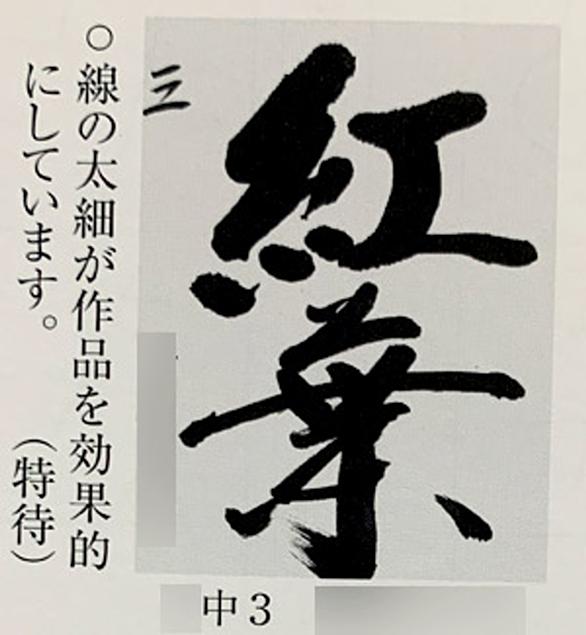 紅葉
三
○線の太細が作品を効果的
にしています。　（特待）
中3